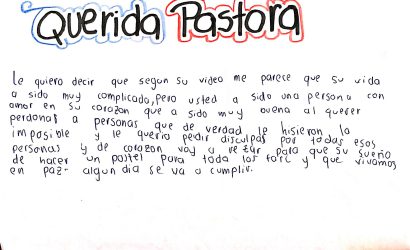 Querida Pastora
Le quiero decir que segun su video me parece que su vida
a sido muy complicada, pero usted a sido una persona con
amor en su corazon que a sido muy buena al querer
perdonas a personas que de verdad le hisieron la
imposible y le querio pedir disculpas por todas esos
personas y de corazon voy a retar para que su sueño
de hacer un pastel para toda las farc y que vivamos
en paz. algun dia se va a cumplir.